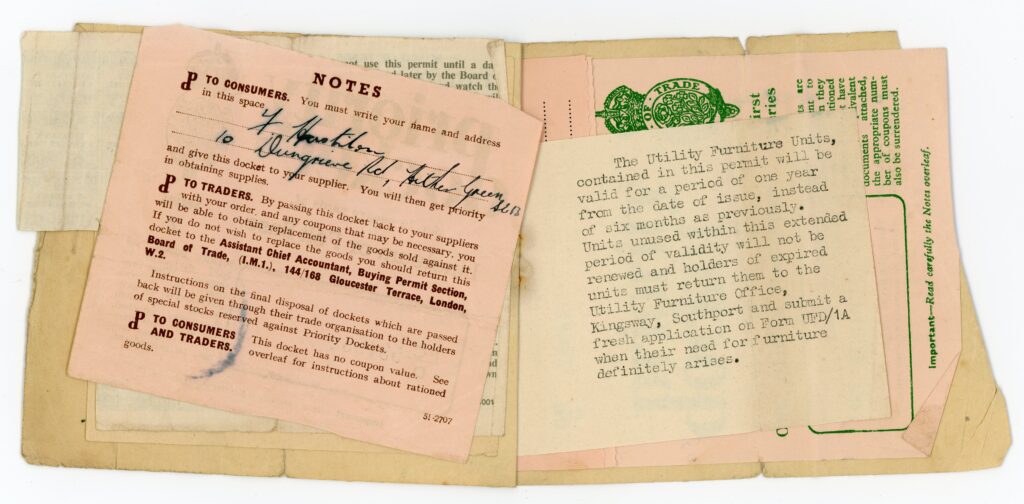 not use this permit until a da
d later by the Board o
d watch the
NOTES
TO CONSUMERS. You must write your name and address
in this space
10
Rd, Hither Green
S.E.13
and give this docket to your supplier. You will then get priority
in obtaining supplies.
TO TRADERS. By passing this docket back to your suppliers
with your order, and any coupons that may be necessary, you
will be able to obtain replacement of the goods sold against it.
If you do not wish to replace the goods you should return this
docket to the Assistant Chief Accountant, Buying Permit Section,
Board of Trade, (I.M.1), 144/168 Gloucester Terrace, London,
W.2.
Instructions on the final disposal of dockets which are passed
back will be given through their trade organisation to the holders
of special stocks reserved against Priority Dockets.
TO CONSUMERS
AND TRADERS. This docket has no coupon value. See
overleaf for instructions about rationed
goods.
51-2707
001
OF TRADE
The Utility Furniture Units,
contained in this permit will be
valid for a period of one year
from the date of issue, instead
of six months as previously.
Units unused within this extended
period of validity will not be
renewed and holders of expired
units must return them to the
Utility Furniture Office,
Kingsway, Southport and submit a
fresh application on Form UFD/1A
when their need for furniture
definitely arises.
irst
ries
ts are
nt to
n they
tioned
t have
ivalent
documents attached,
the appropriate num-
ber of coupons must
also be surrendered.
Important—Read carefully the Notes overleaf.